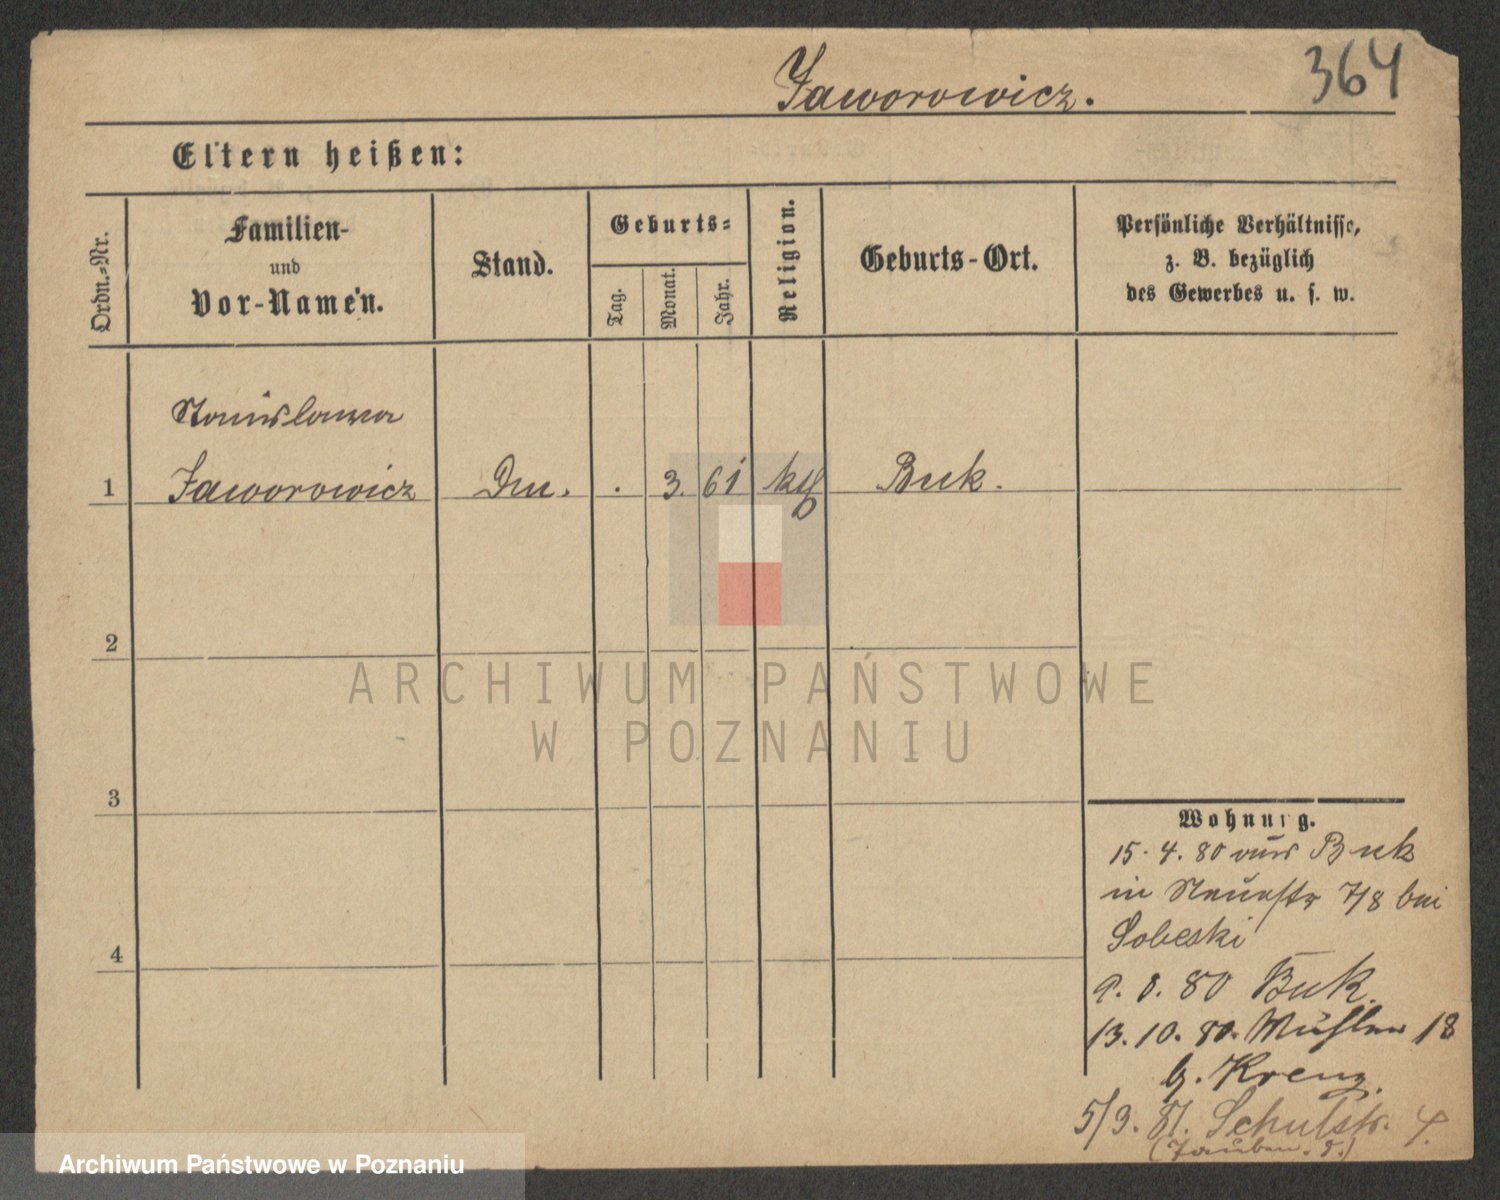 Jaworowicz.
364
Eltern heißen:
Ordn.-Nr.
Familien-
und
Vor-Namen.
Stand.
Geburts-
Tag.
Monat.
Jahr.
Religion.
Geburts-Ort.
Persönliche Verhältnisse,
z. B. bezüglich
des Gewerbes u. s. w.
Stanislawa
1 Jaworowicz . 3. 61 kth Buk.
2
3
4
Wohnung.
15. 4. 80 aus Buk
in Neuestr 7/8 bei
Sobeski
9. 8. 80 Buk.
13. 10. 80. Mühlen 18
b. Krenz.
5/3. 81. Schulstr. 4.
(Tauben. d.)
ARCHIWUM PAŃSTWOWE
W POZNANIU
Archiwum Państwowe w Poznaniu